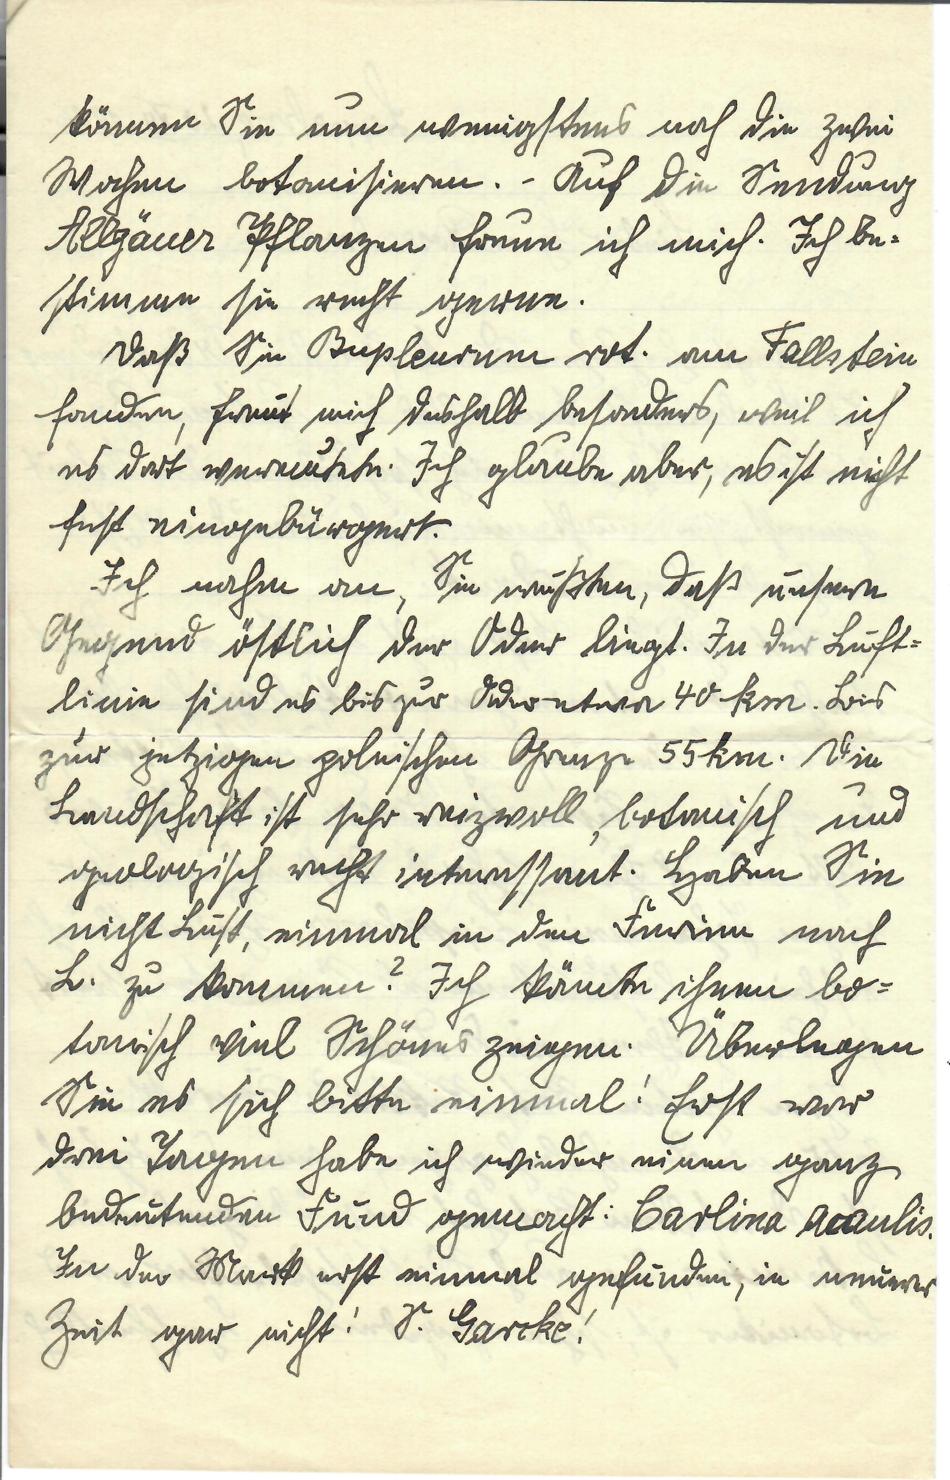 können Sie nun wenigstens noch die zwei
Wochen botanisieren. - Auf die Sendung
Allgäuer Pflanzen freue ich mich. Ich be=
stimme sie recht gerne.
Daß Sie Bupleurum rot. am Fallstein
fanden, freut mich deshalb besonders, weil ich
es dort vermutete. Ich glaube aber, es ist nicht
fest eingebürgert.
Ich nahm an, Sie wüßten, daß unsere
Gegend östlich der Oder liegt. In der Luft=
linie sind es bis zur Oder etwa 40 km. bis
zur jetzigen polnischen Grenze 55 km. Die
Landschaft ist sehr reizvoll, botanisch und
geologisch recht interessant. Haben Sie
nicht Lust, einmal in den Ferien nach
L. zu kommen? Ich könnte ihnen bo=
tanisch viel Schönes zeigen. Überlegen
Sie es sich bitte einmal! Erst vor
drei Tagen habe ich wieder einen ganz
bedeutenden Fund gemacht: Carlina acaulis.
In der Mark erst einmal gefunden, in neuerer
Zeit gar nicht! S. Garcke!